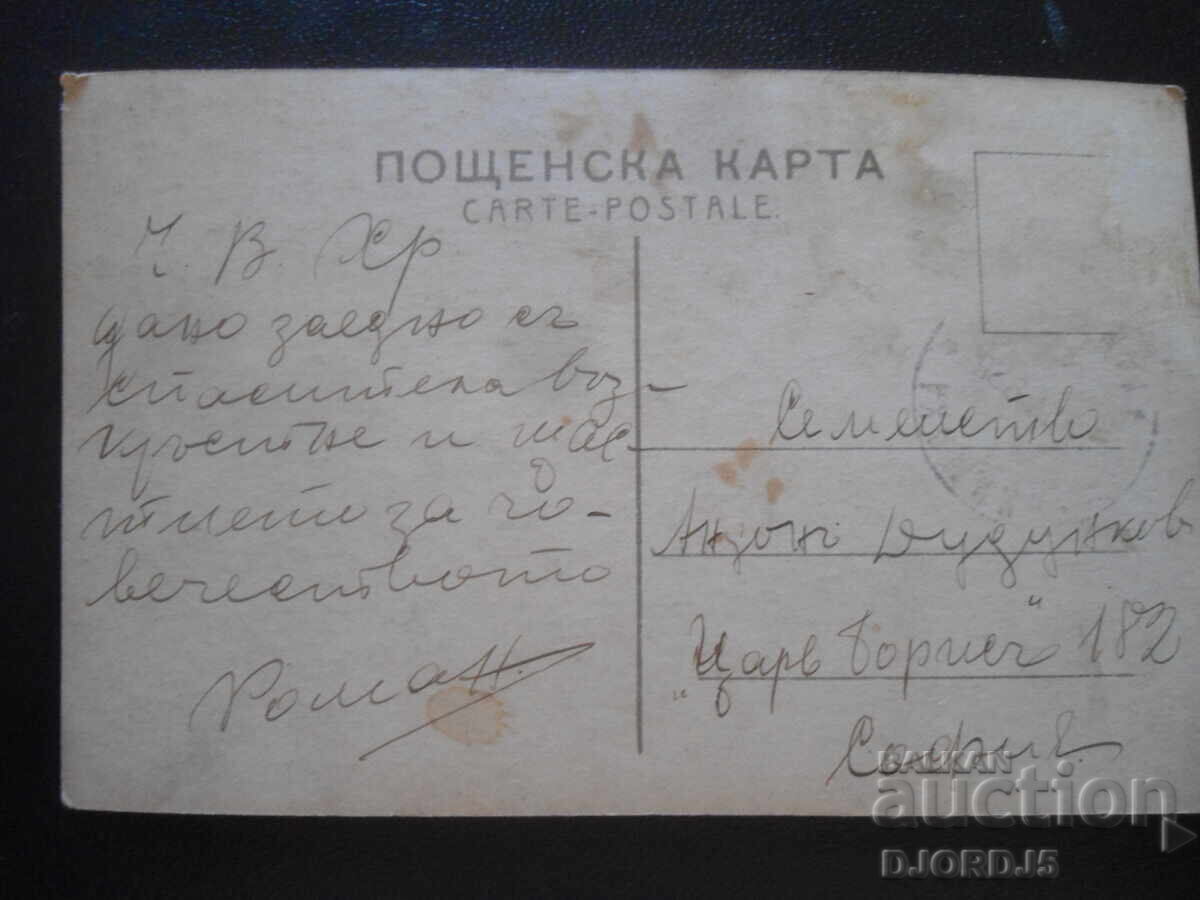 ПОЩЕНСКА КАРТА
CARTE-POSTALE.
Ч. В. Хр
дано заедно съ
спасителя воз-
кръсне и щас
тието за чо-
вечеството
Роман.
Семейство
Дудунков
„Царъ Борисъ“ 182
София.
BALKAN
auction
DJORDJ5